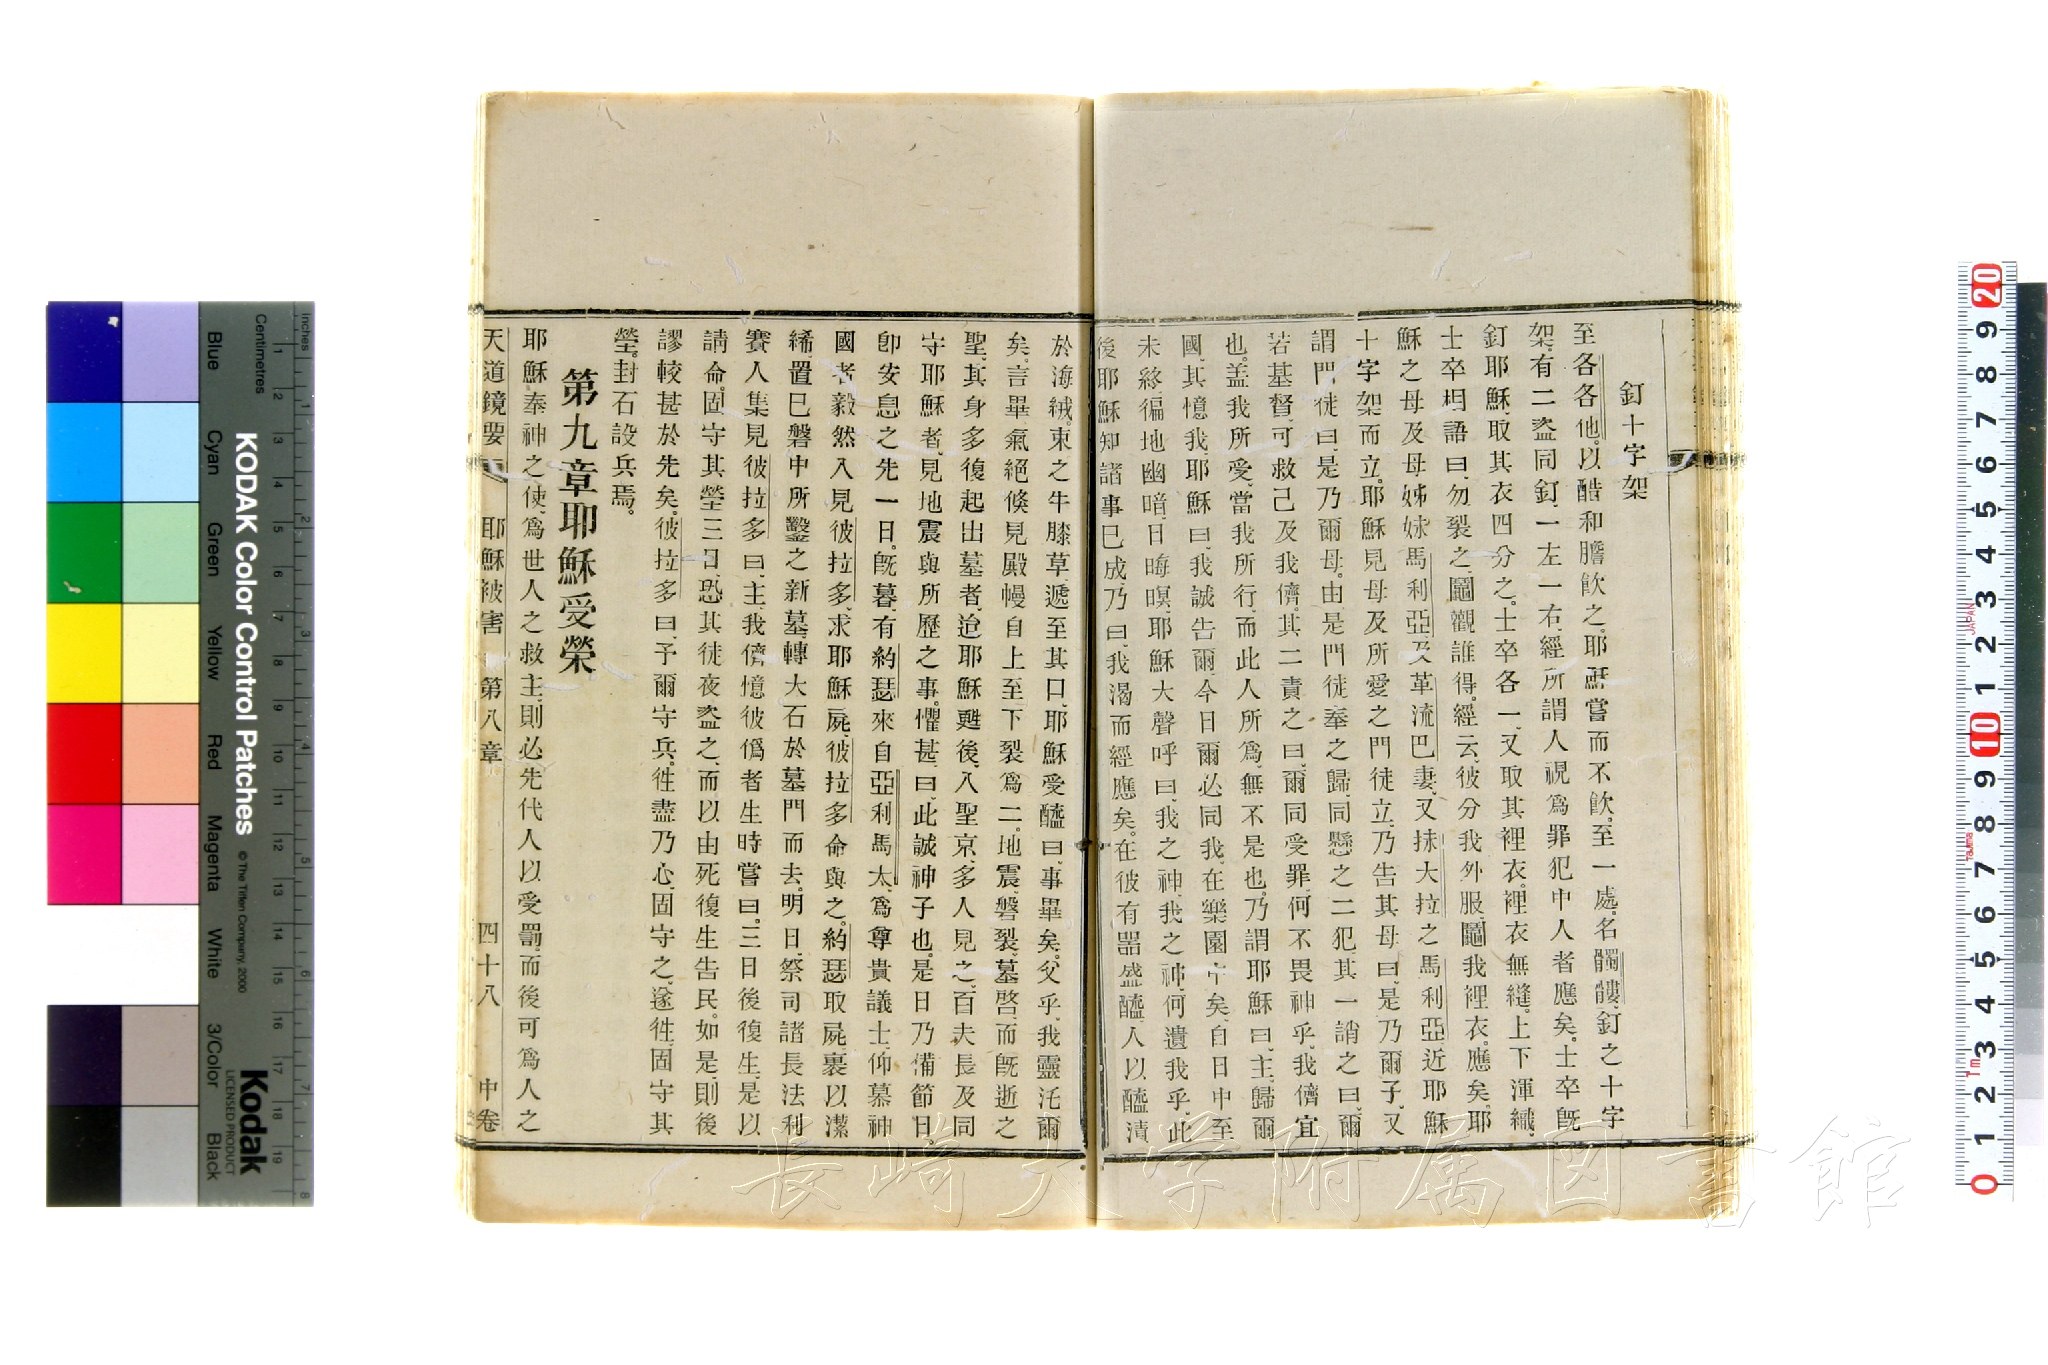 釘十字架
至各各他。以醋和膽飲之、耶穌嘗而不飲。至一處、名髑髏、釘之十字
架。有二盜同釘、一左一右、經所謂人視爲罪犯中人者應矣。士卒旣
釘耶穌、取其衣四分之。士卒各一、又取其裡衣。裡衣無縫、上下渾織、
士卒相語曰、勿裂之、鬮觀誰得。經云、彼分我外服、鬮我裡衣。應矣。耶
穌之母及母姊妹馬利亞及革流巴妻、又抹大拉之馬利亞、近耶穌
十字架而立。耶穌見母及所愛之門徒立、乃告其母曰、是乃爾子、又
謂門徒曰、是乃爾母。由是門徒奉之歸。同懸之二犯、其一誚之曰、爾
若基督、可救己及我儕。其二責之曰、爾同受罪、何不畏神乎、我儕宜
也。盖我所受、當我所行、而此人所爲、無不是也。乃謂耶穌曰、主歸爾
國、其憶我、耶穌曰、我誠告爾、今日爾必同我、在樂園中矣。自日中至
未終、徧地幽暗、日晦暝、耶穌大聲呼曰、我之神、我之神、何遺我乎、此
後耶穌知諸事已成、乃曰、我渴而經應矣。在彼有器盛醯、人以醯漬
於海絨。束之牛膝草、遞至其口、耶穌受醯曰、事畢矣。父乎、我靈托爾
矣。言畢、氣絕倐見殿幔自上至下裂爲二。地震、磐裂、墓啓、而旣逝之
聖、其身多復起出墓者、迨耶穌甦後、入聖京、多人見之、百夫長及同
守耶穌者、見地震與所歷之事。懼甚、曰、此誠神子也。是日乃備節日、
卽安息之先一日。旣暮、有約瑟來自亞利馬太、爲尊貴議士、仰慕神
國者毅然入見彼拉多、求耶穌屍、彼拉多命與之。約瑟取屍、裹以潔
絺、置已磐中所鑿之新墓、轉大石於墓門而去。明日、祭司諸長法利
賽人集見彼拉多曰、主、我儕憶彼僞者生時嘗曰。三日後復生、是以
請命。固守其塋三日、恐其徒夜盜之、而以由死復生告民。如是、則後
謬較甚於先矣。彼拉多曰、予爾守兵。徃盡乃心、固守之、遂徃、固守其
塋。封石設兵焉。
第九章耶穌受榮
耶穌奉神之使、爲世人之救主、則必先代人以受罰、而後可爲人之
天道鏡要 耶穌被害 第八章 四十八 中卷
KODAK Color Control Patches
© The Tiffen Company, 2000
Kodak
LICENSED PRODUCT
Inches
Centimetres
Blue
Cyan
Green
Yellow
Red
Magenta
White
3/Color
Black
長崎大学附属図書館